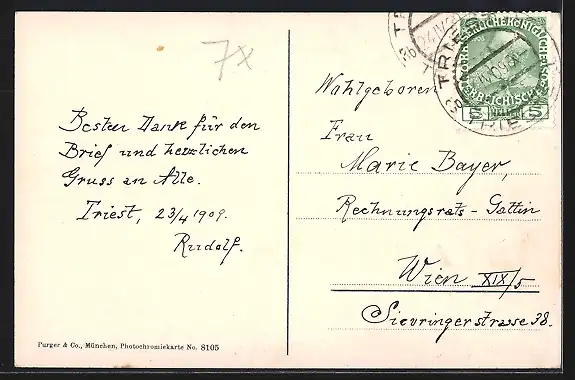 7x
Besten Dank für den
Brief und herzlichen
Gruss an Alle.
Triest, 23/4 1909.
Rudolf.
Purger & Co., München, Photochromiekarte No. 8105
TRIEST
5 5
Wohlgeboren
Frau
Marie Bayer,
Rechnungsrats-Gattin
Wien XIX/5
Sieveringerstrasse 38.